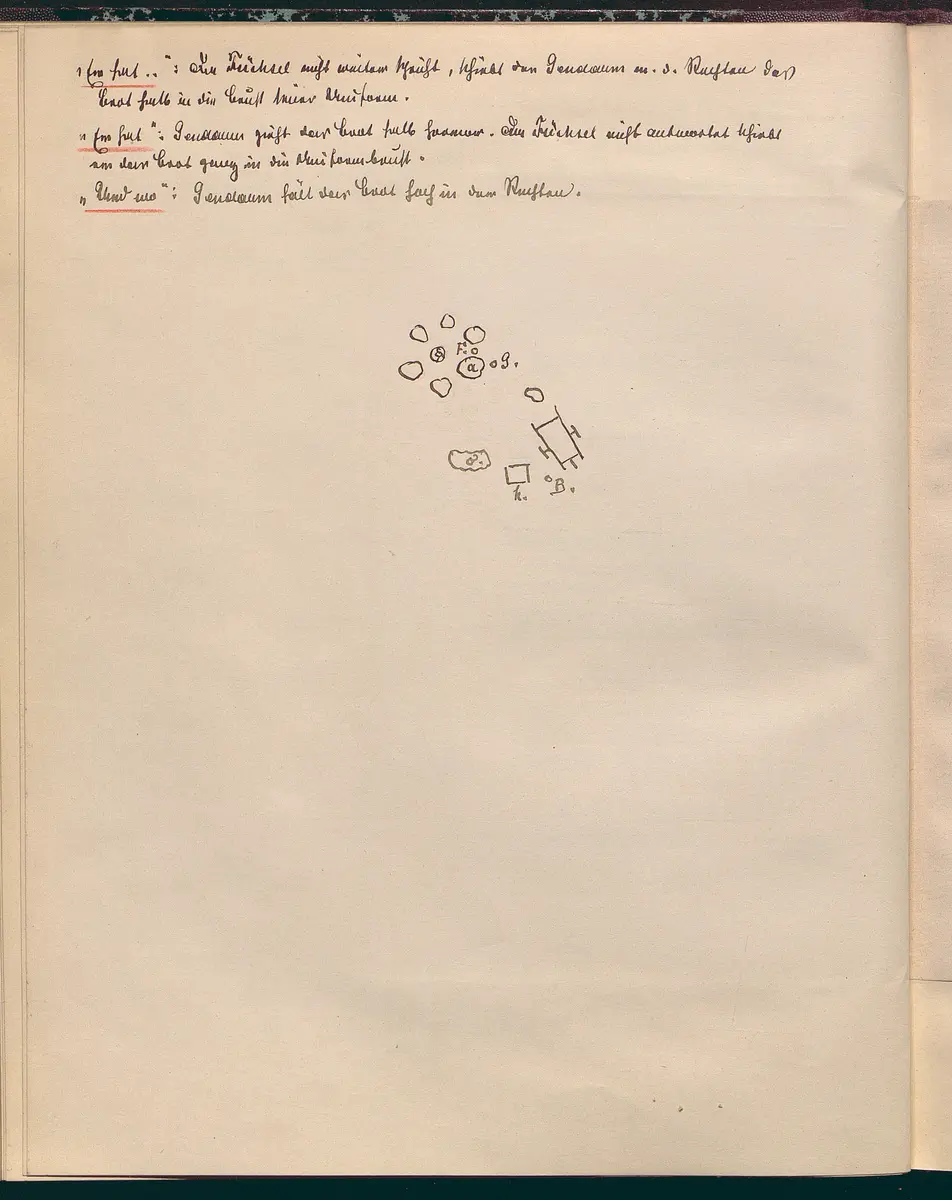 „Er hat ..": Da Füchsel nicht weiter spricht, schiebt der Gendarm m. d. Rechten das
Brot halb in die Brust seiner Uniform.
„Er hat": Gendarm zieht das Brot halb hervor. Da Füchsel nicht antwortet schiebt
er das Brot ganz in die Uniformbrust.
„Und wo": Gendarm hält das Brot hoch in der Rechten.
F.
a
G.
k.
B.